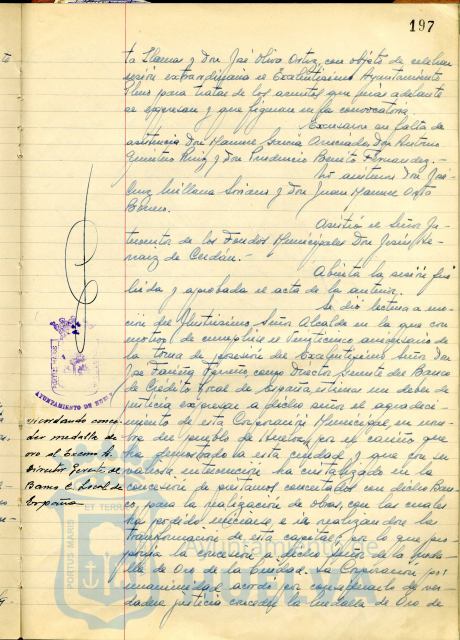 197
ta Llamas y Don José Oliva Ortiz, con objeto de celebrar
sesión extraordinaria el Excelentísimo Ayuntamiento
Pleno para tratar de los asuntos que más adelante
se expresan y que figuran en la convocatoria.
Excusaron su falta de
asistencia Don Manuel Don Antonio
Quintero Ruiz y Don Prudencio Benito Fernandez.-
No asistieron Don José
Cruz Soriano y Don Juan Manuel
Asistió el Señor In-
terventor de los Fondos Municipales Don Jesús
de Cerdán.-
Abierta la sesión fue
leida y aprobada el acta de la anterior.
Se dió lectura a mo-
ción del Ilustrísimo Señor Alcalde en la que con
motivo de cumplirse el aniversario de
la toma de posesión del Excelentísimo Señor Don
José Fariña Ferreño como Director Gerente del Banco
de Crédito Local de España, estima un deber de
justicia expresar a dicho señor el agradeci-
miento de esta Corporación Municipal, en nom-
bre del pueblo de Huelva, por el cariño que
ha demostrado a esta ciudad y que con su
valiosa intervención ha cristalizado en la
concesión de préstamos concertados con dicho Ban-
co, para la realización de obras, con las cuales
ha podido iniciarse, e ir realizandose la
transformación de esta capital, por lo que pro-
ponía la concesión a dicho señor de la meda-
lla de Oro de la Ciudad. La Corporación por
unanimidad acordó por considerarlo de ver-
dadera justicia conceder la medalla de Oro de
AYUNTAMIENTO DE HUELVA
Acordando conce-
der medalla de
oro al Excmo. Sr.
Director Gerente del
Banco C. Local de
España
PORTUS MARIS ET TERRAE
Ayuntamiento de
HUELVA